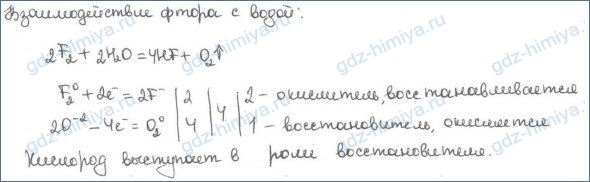 Взаимодействие фтора с водой:
2F₂ + 2H₂O = 4HF + O₂↑
F₂⁰ + 2e⁻ = 2F⁻ | 2 | 4 | 2 - окислитель, восстанавливается
2O⁻² - 4e⁻ = O₂⁰ | 4 | | 1 - восстановитель, окисляется
Кислород выступает в роли восстановителя.
gdz-himiya.ru